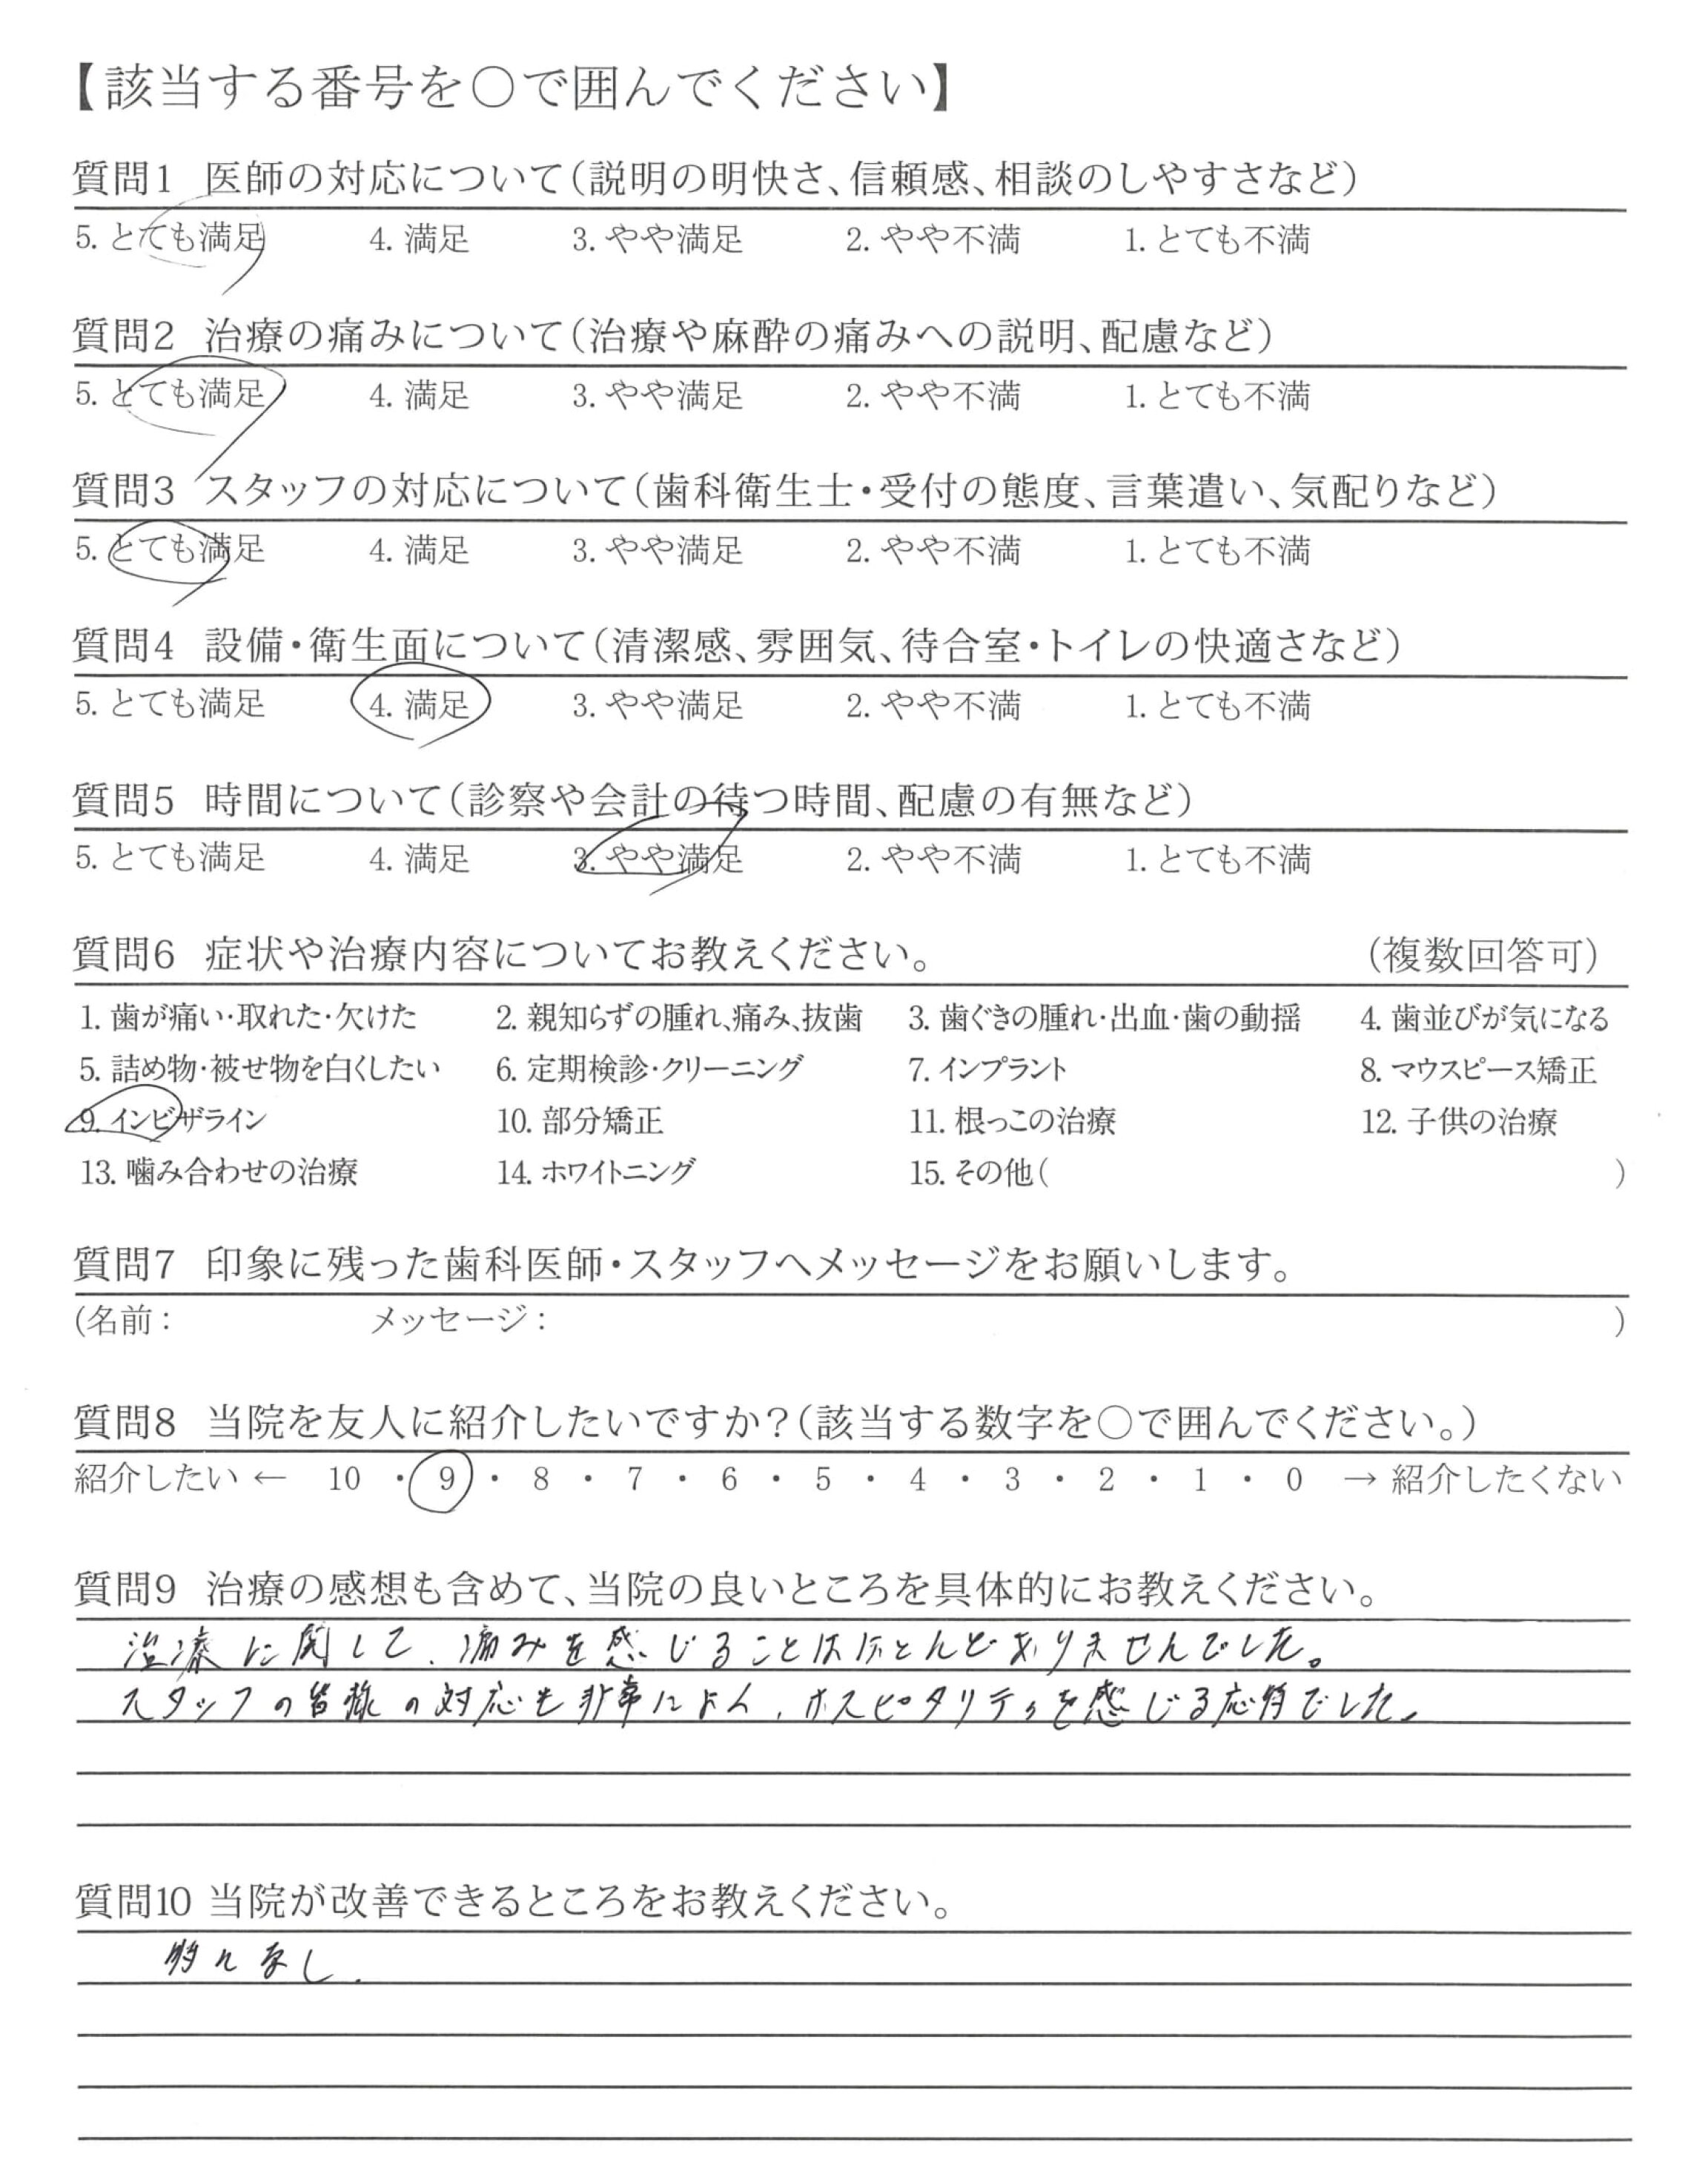 【該当する番号を○で囲んでください】
質問1 医師の対応について（説明の明快さ、信頼感、相談のしやすさなど）
5. とても満足 4. 満足 3. やや満足 2. やや不満 1. とても不満
質問2 治療の痛みについて（治療や麻酔の痛みへの説明、配慮など）
5. とても満足 4. 満足 3. やや満足 2. やや不満 1. とても不満
質問3 スタッフの対応について（歯科衛生士・受付の態度、言葉遣い、気配りなど）
5. とても満足 4. 満足 3. やや満足 2. やや不満 1. とても不満
質問4 設備・衛生面について（清潔感、雰囲気、待合室・トイレの快適さなど）
5. とても満足 4. 満足 3. やや満足 2. やや不満 1. とても不満
質問5 時間について（診察や会計の待つ時間、配慮の有無など）
5. とても満足 4. 満足 3. やや満足 2. やや不満 1. とても不満
質問6 症状や治療内容についてお教えください。 （複数回答可）
1. 歯が痛い・取れた・欠けた 2. 親知らずの腫れ、痛み、抜歯 3. 歯ぐきの腫れ・出血・歯の動揺 4. 歯並びが気になる
5. 詰め物・被せ物を白くしたい 6. 定期検診・クリーニング 7. インプラント 8. マウスピース矯正
9. インビザライン 10. 部分矯正 11. 根っこの治療 12. 子供の治療
13. 噛み合わせの治療 14. ホワイトニング 15. その他( )
質問7 印象に残った歯科医師・スタッフへメッセージをお願いします。
(名前： メッセージ： )
質問8 当院を友人に紹介したいですか？（該当する数字を○で囲んでください。）
紹介したい ← 10 ・ 9 ・ 8 ・ 7 ・ 6 ・ 5 ・ 4 ・ 3 ・ 2 ・ 1 ・ 0 → 紹介したくない
質問9 治療の感想も含めて、当院の良いところを具体的にお教えください。
治療に関して、痛みを感じることはほとんどありませんでした。
スタッフの皆様の対応も非常によく、ホスピタリティを感じる応対でした。
質問10 当院が改善できるところをお教えください。
特になし.